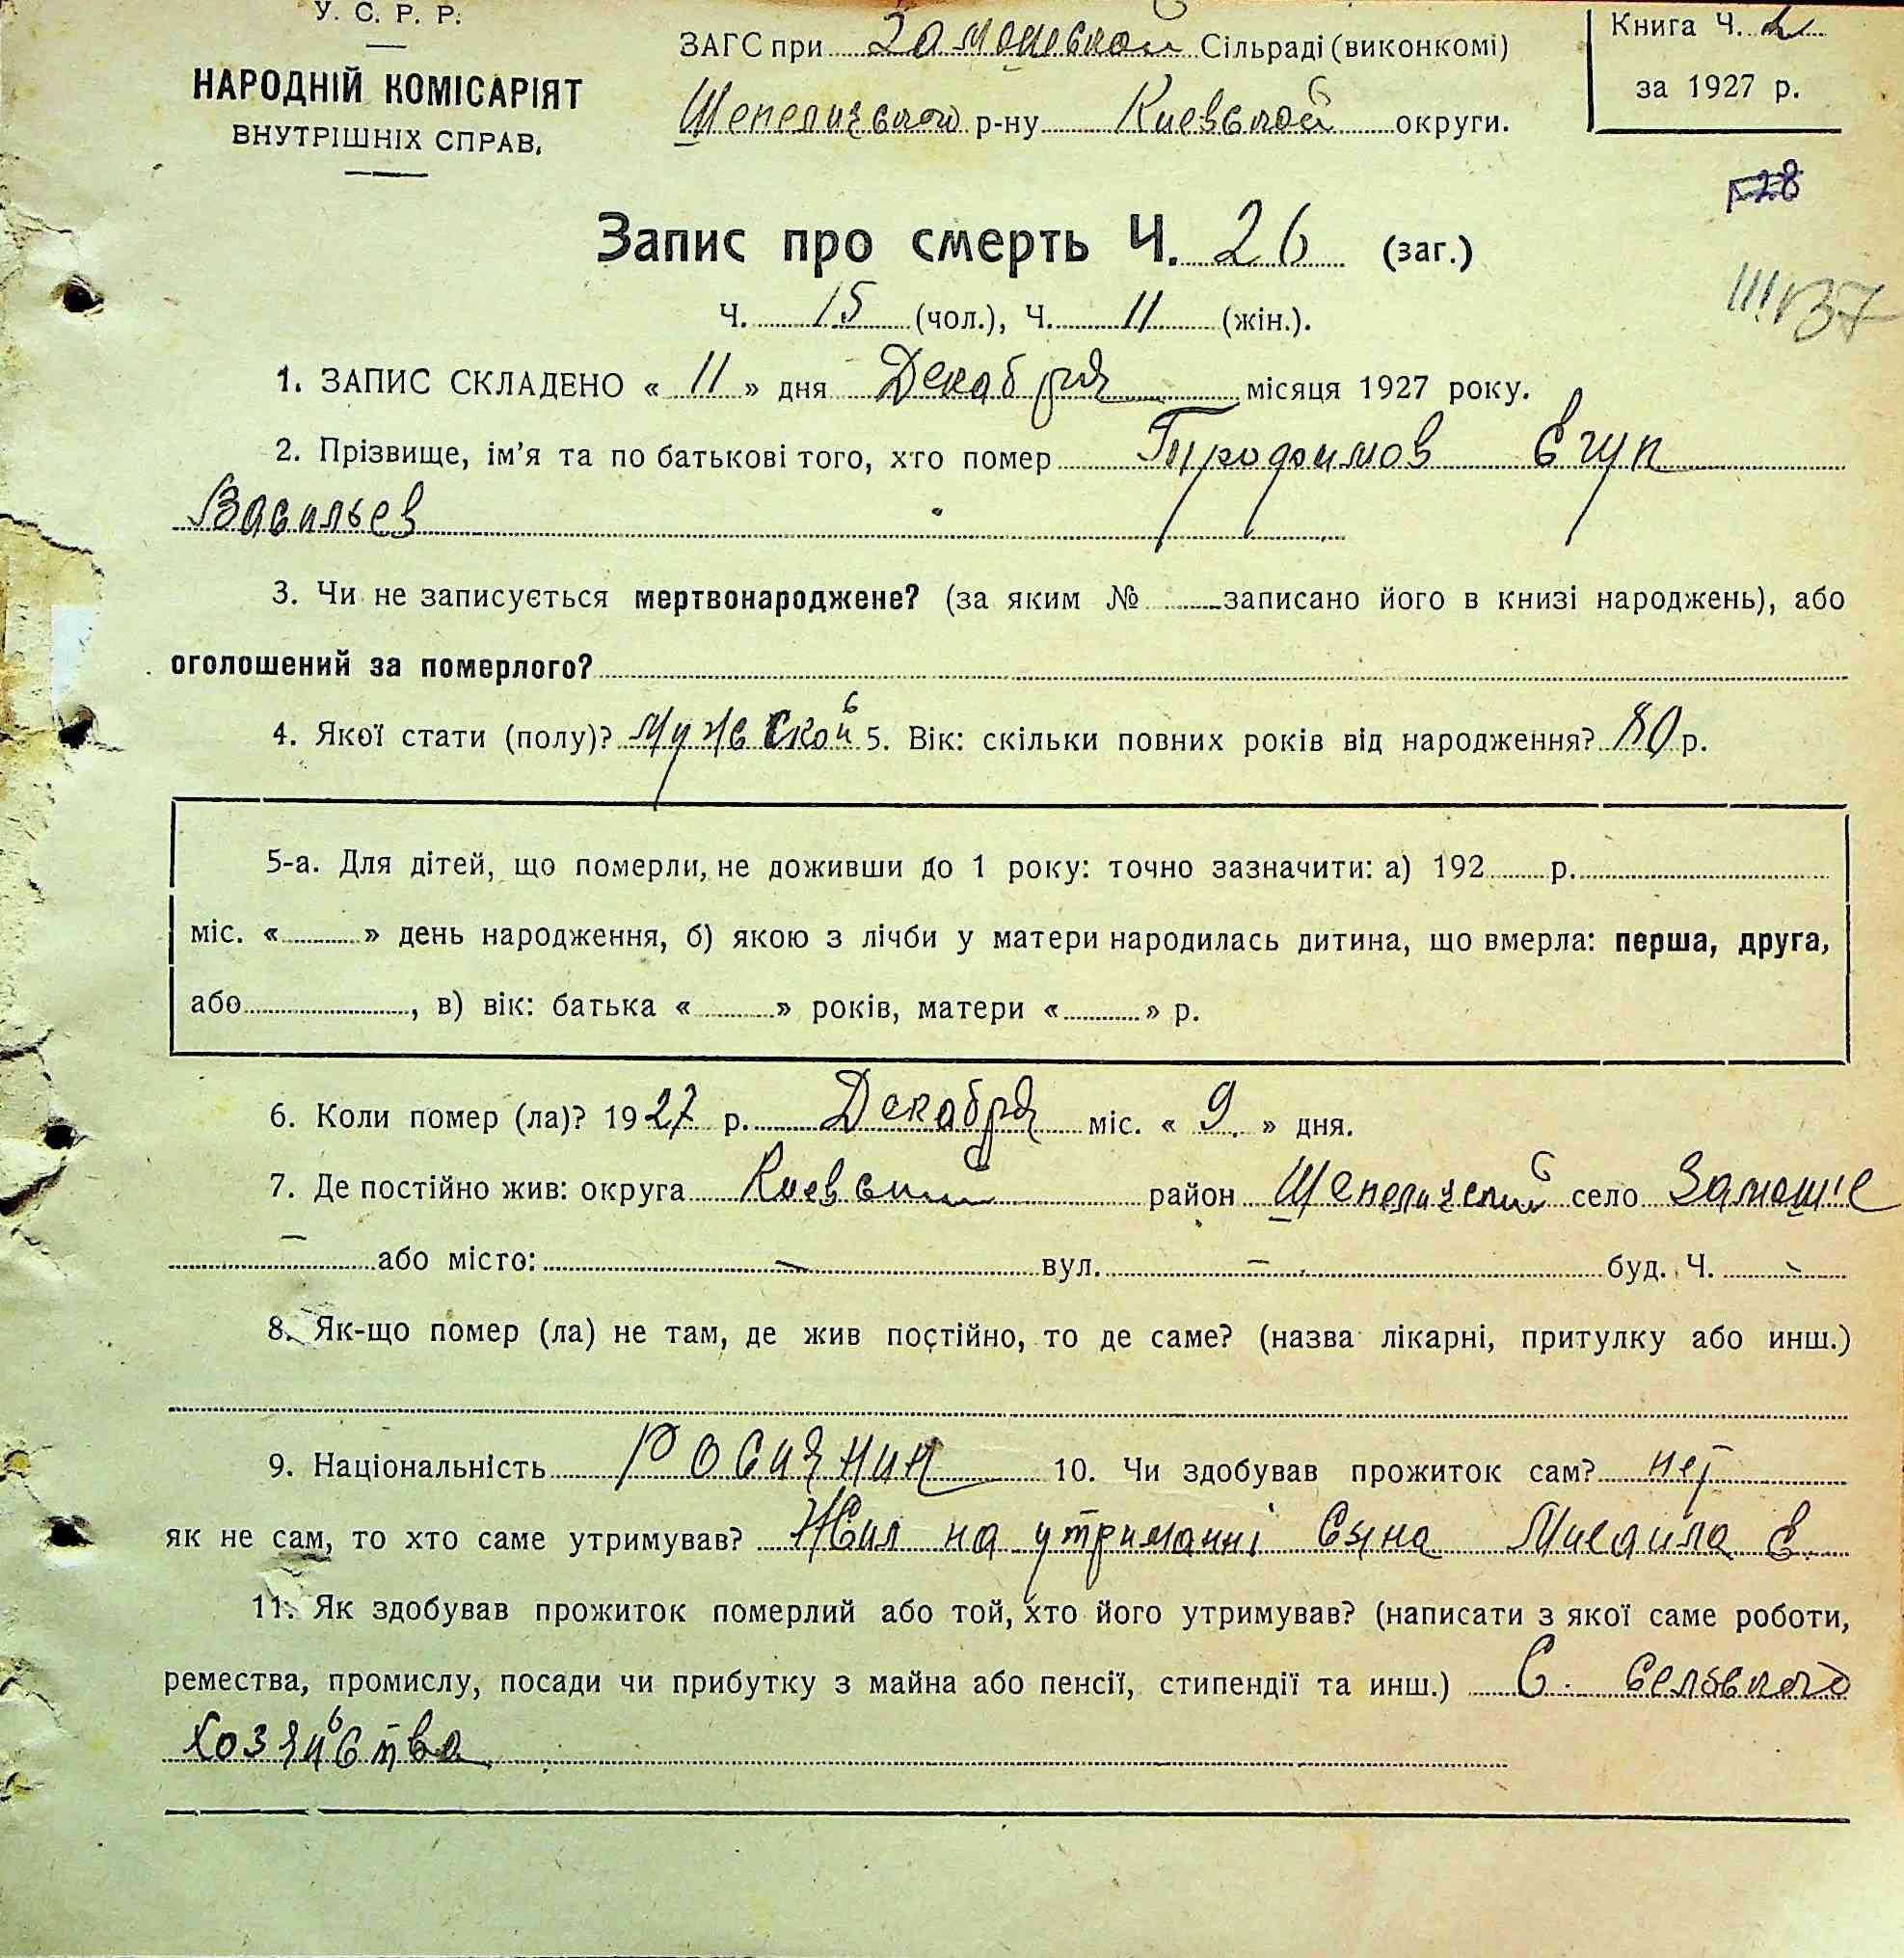 У. С. Р. Р.
НАРОДНІЙ КОМІСАРІЯТ
ВНУТРІШНІХ СПРАВ.
ЗАГС при Замошской Сільраді (виконкомі)
Шепеличского р-ну Киевской округи.
Книга Ч.
за 1927 р.
Запис про смерть Ч. 26 (заг.)
Ч. 15 (чол.), Ч. 11 (жін.).
1. ЗАПИС СКЛАДЕНО « 11 » дня Декабря місяця 1927 року.
2. Прізвище, ім'я та по батькові того, хто помер Трофимов Егуп
Васильев
3. Чи не записується мертвонароджене? (за яким № записано його в книзі народжень), або
оголошений за померлого?
4. Якої стати (полу)? Мужской 5. Вік: скільки повних років від народження? 80 р.
5-а. Для дітей, що померли, не доживши до 1 року: точно зазначити: а) 192 р.
міс. « » день народження, б) якою з лічби у матери народилась дитина, що вмерла: перша, друга,
або , в) вік: батька « » років, матери « » р.
6. Коли помер (ла)? 1927 р. Декабря міс. « 9 » дня.
7. Де постійно жив: округа Киевский район Шепеличский село Замошне
– або місто: – вул. – буд. Ч. –
8. Як-що помер (ла) не там, де жив постійно, то де саме? (назва лікарні, притулку або инш.)
9. Національність Росиянин 10. Чи здобував прожиток сам? нет
як не сам, то хто саме утримував? Жил на утриманні Сына Мисаила Е.
11. Як здобував прожиток померлий або той, хто його утримував? (написати з якої саме роботи,
ремества, промислу, посади чи прибутку з майна або пенсії, стипендії та инш.) С. сельского
хозяйства